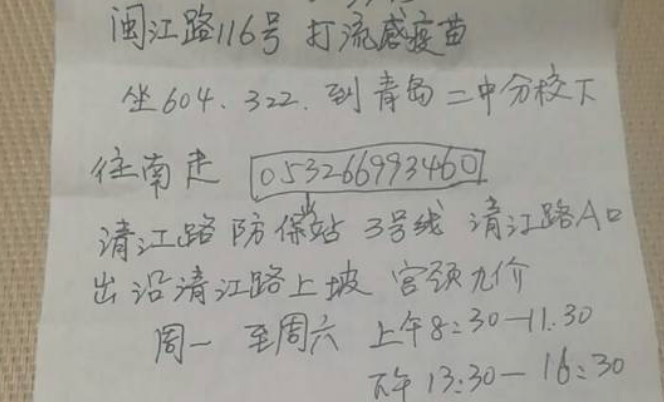 闽江路116号 打流感疫苗
坐604、322、到青岛二中分校下
往南走 053266993460
清江路防保站 3号线 清江路A口
出沿清江路上坡 宫颈九价
周一至周六 上午8:30—11.30
下午13:30—16:30